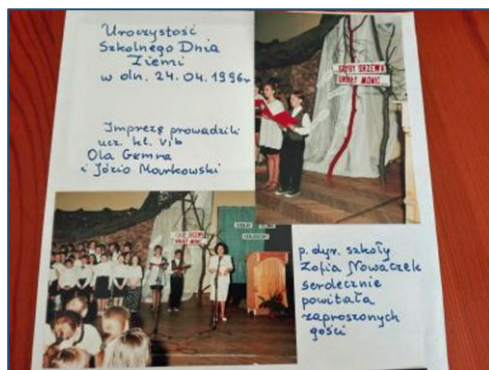 Uroczystość
Szkolnego Dnia
Ziemi
w dn. 24.04.1996r
Imprezę prowadzili
ucz. kl. VIb
Ola Gemra
i Józio Markowski
...GDYBY DRZEWA
UMIAŁY MÓWIĆ...
p. dyr. szkoły
Zofia Nowaczek
serdecznie
powitała
zaproszonych
gości